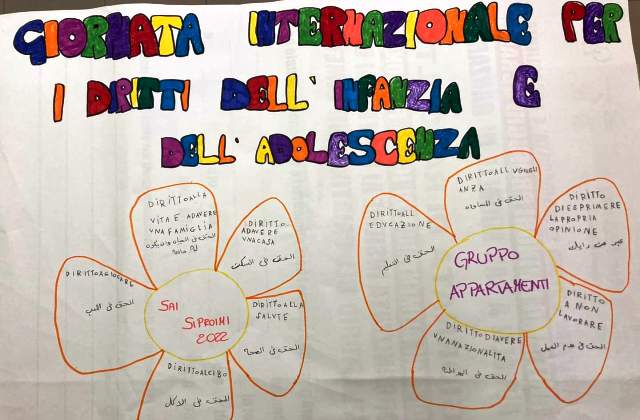 GIORNATA INTERNAZIONALE PER
I DIRITTI DELL'INFANZIA E
DELL'ADOLESCENZA
DIRITTO ALLA
VITA E AD AVERE
UNA FAMIGLIA
DIRITTO
AD AVERE
UNA CASA
الحق في السكن
DIRITTO ALLA
SALUTE
الحق في الصحة
DIRITTO AL CIBO
الحق في الاكل
DIRITTO A GIOCARE
الحق في اللعب
SAI
SIPROIMI
2022
DIRITTO ALL UGUAGLI
ANZA
الحق في المساواة
DIRITTO
DI ESPRIMERE
LA PROPRIA
OPINIONE
عبر عن رايك
DIRITTO
A NON
LAVORARE
الحق في عدم العمل
DIRITTO DI AVERE
UNA NAZIONALITA
DIRITTO ALL
EDUCAZIONE
الحق في التعلم
GRUPPO
APPARTAMENTI